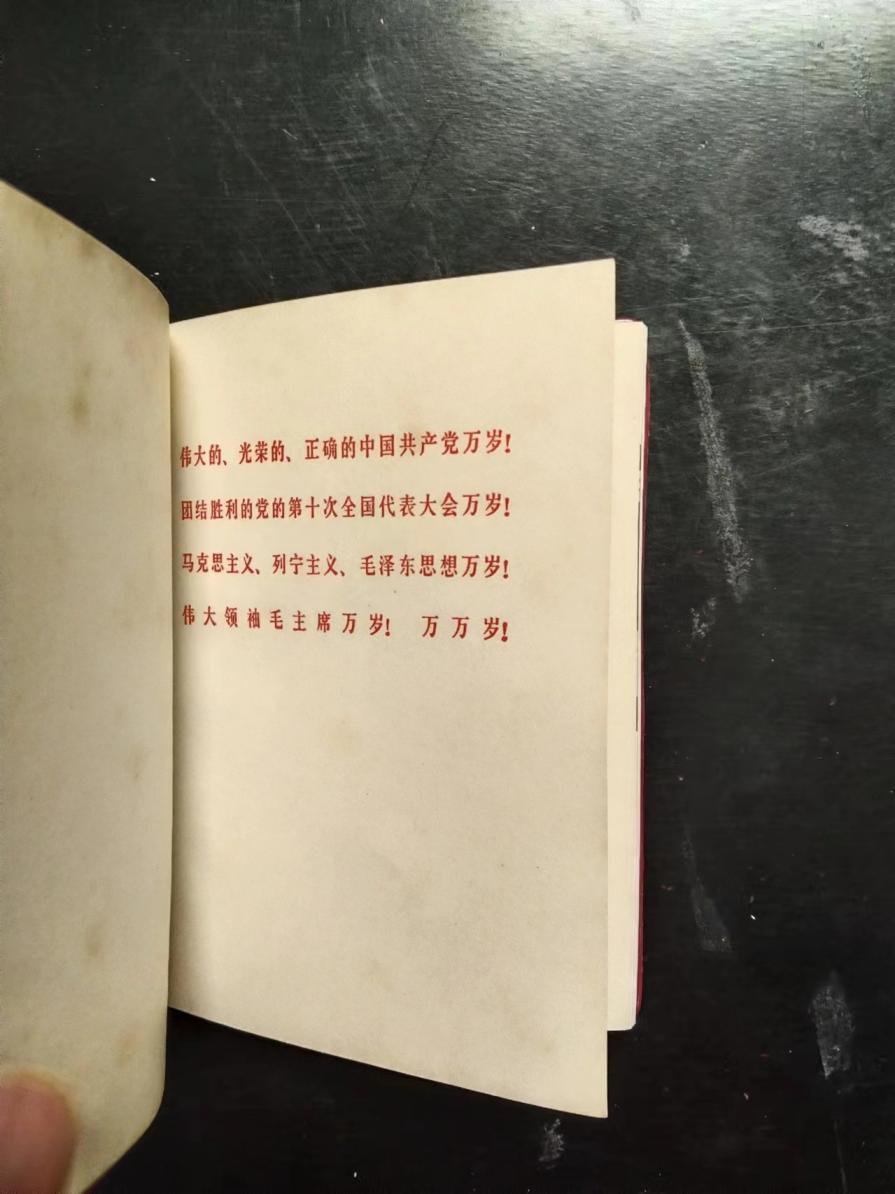 伟大的、光荣的、正确的中国共产党万岁!
团结胜利的党的第十次全国代表大会万岁!
马克思主义、列宁主义、毛泽东思想万岁!
伟大领袖毛主席万岁! 万万岁!